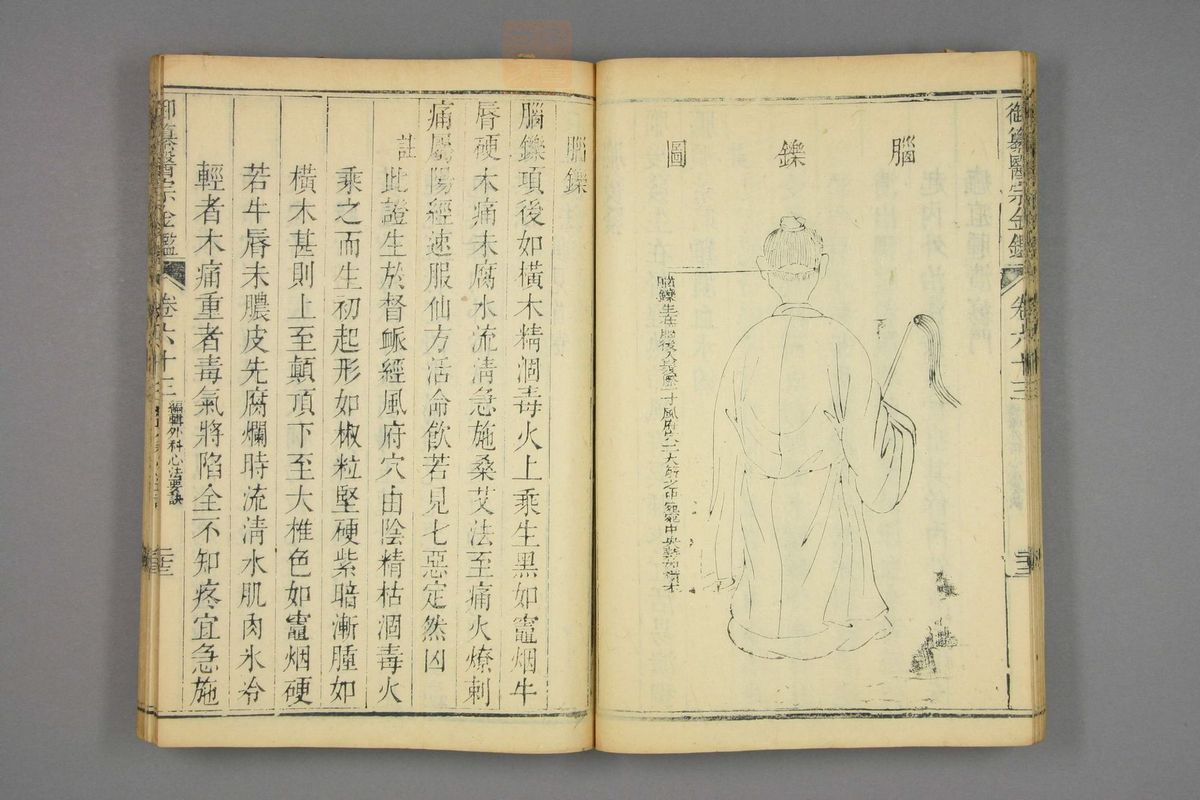 御纂醫宗金鑑
卷六十三
腦鑠圖
腦鑠
腦鑠項後如橫木精涸毒火上乘生黑如竈烟牛
唇硬木痛未腐水流清急施桑艾法至痛火燎刺
痛屬陽經速服仙方活命飲若見七惡定然凶
註
此證生於督脈經風府穴由陰精枯涸毒火
乘之而生初起形如椒粒堅硬紫暗漸腫如
橫木甚則上至顛頂下至大椎色如竈烟硬
若牛唇未膿皮先腐爛時流清水肌肉冰冷
輕者木痛重者毒氣將陷全不知疼宜急施
御纂醫宗金鑑
卷六十三
編輯外科心法要訣